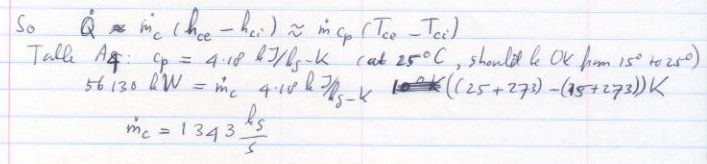 So Q̇ ≈ ṁc (hce − hci) ≈ ṁ cp (Tce − Tci)
Table A4: cp = 4.18 kJ/kg-K (at 25°C, should be OK from 15° to 25°)
56 130 kW = ṁc 4.18 kJ/kg-K ((25+273) − (15+273)) K
ṁc = 1343 kg/s